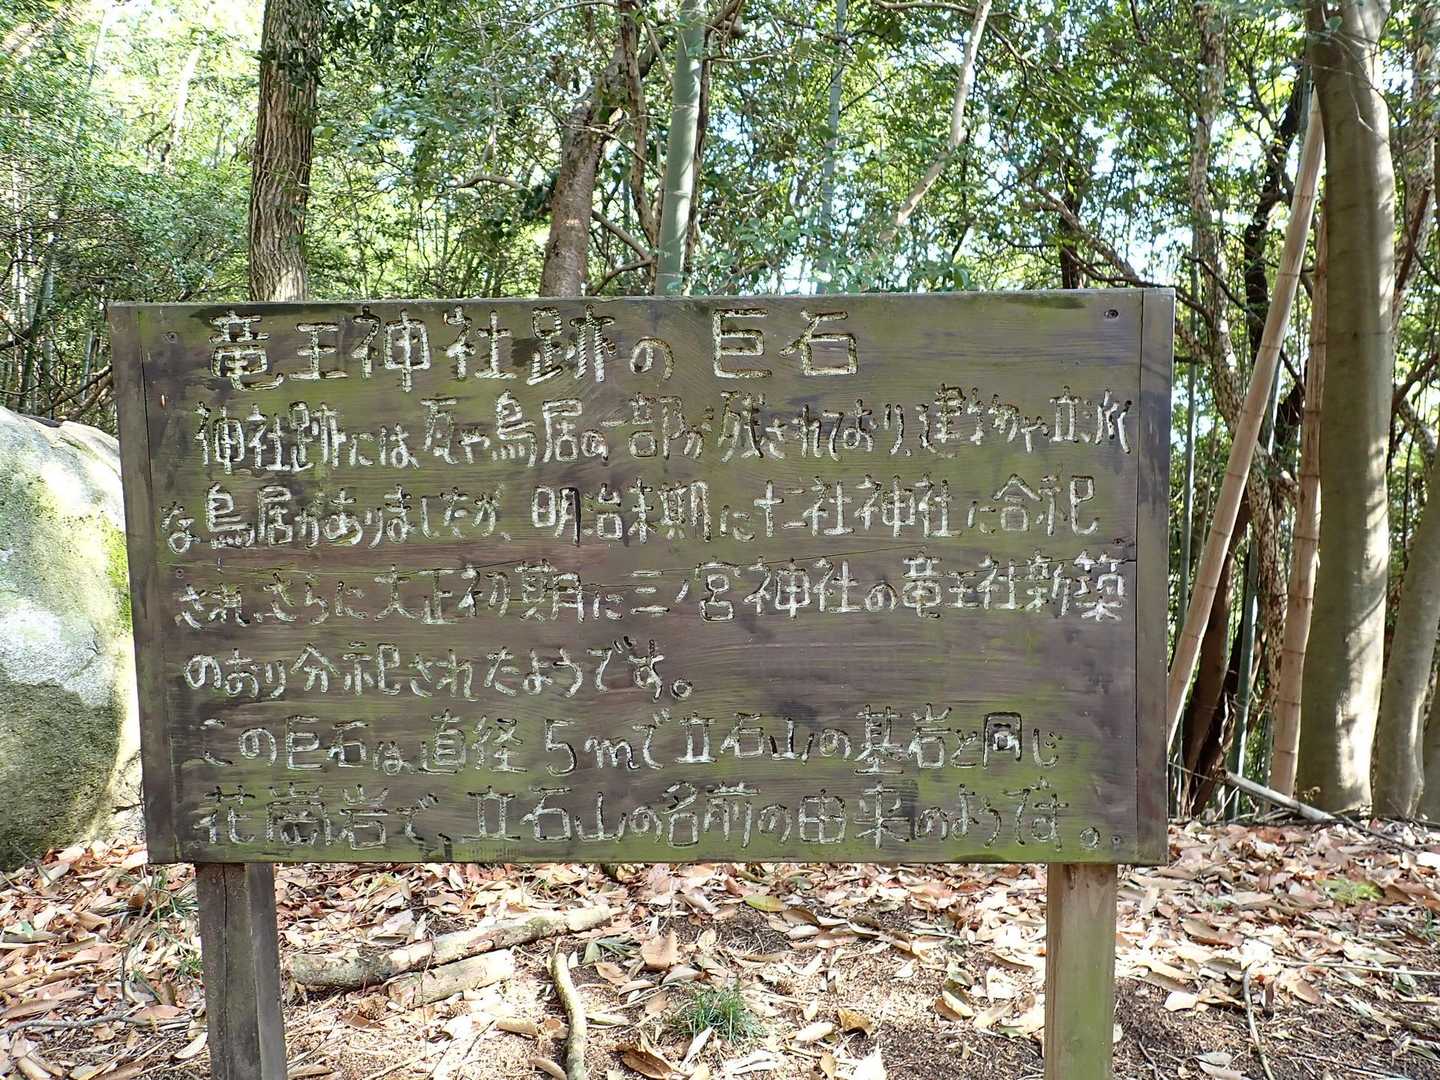 竜王神社跡の巨石
神社跡には瓦や鳥居の一部が残されており、建物や立派
な鳥居がありましたが、明治末期に十二社神社に合祀
され、さらに大正初期に三ノ宮神社の竜王社新築
のおり分祀されたようです。
この巨石は直径5mで立石山の基岩と同じ
花崗岩で立石山の名前の由来のようです。